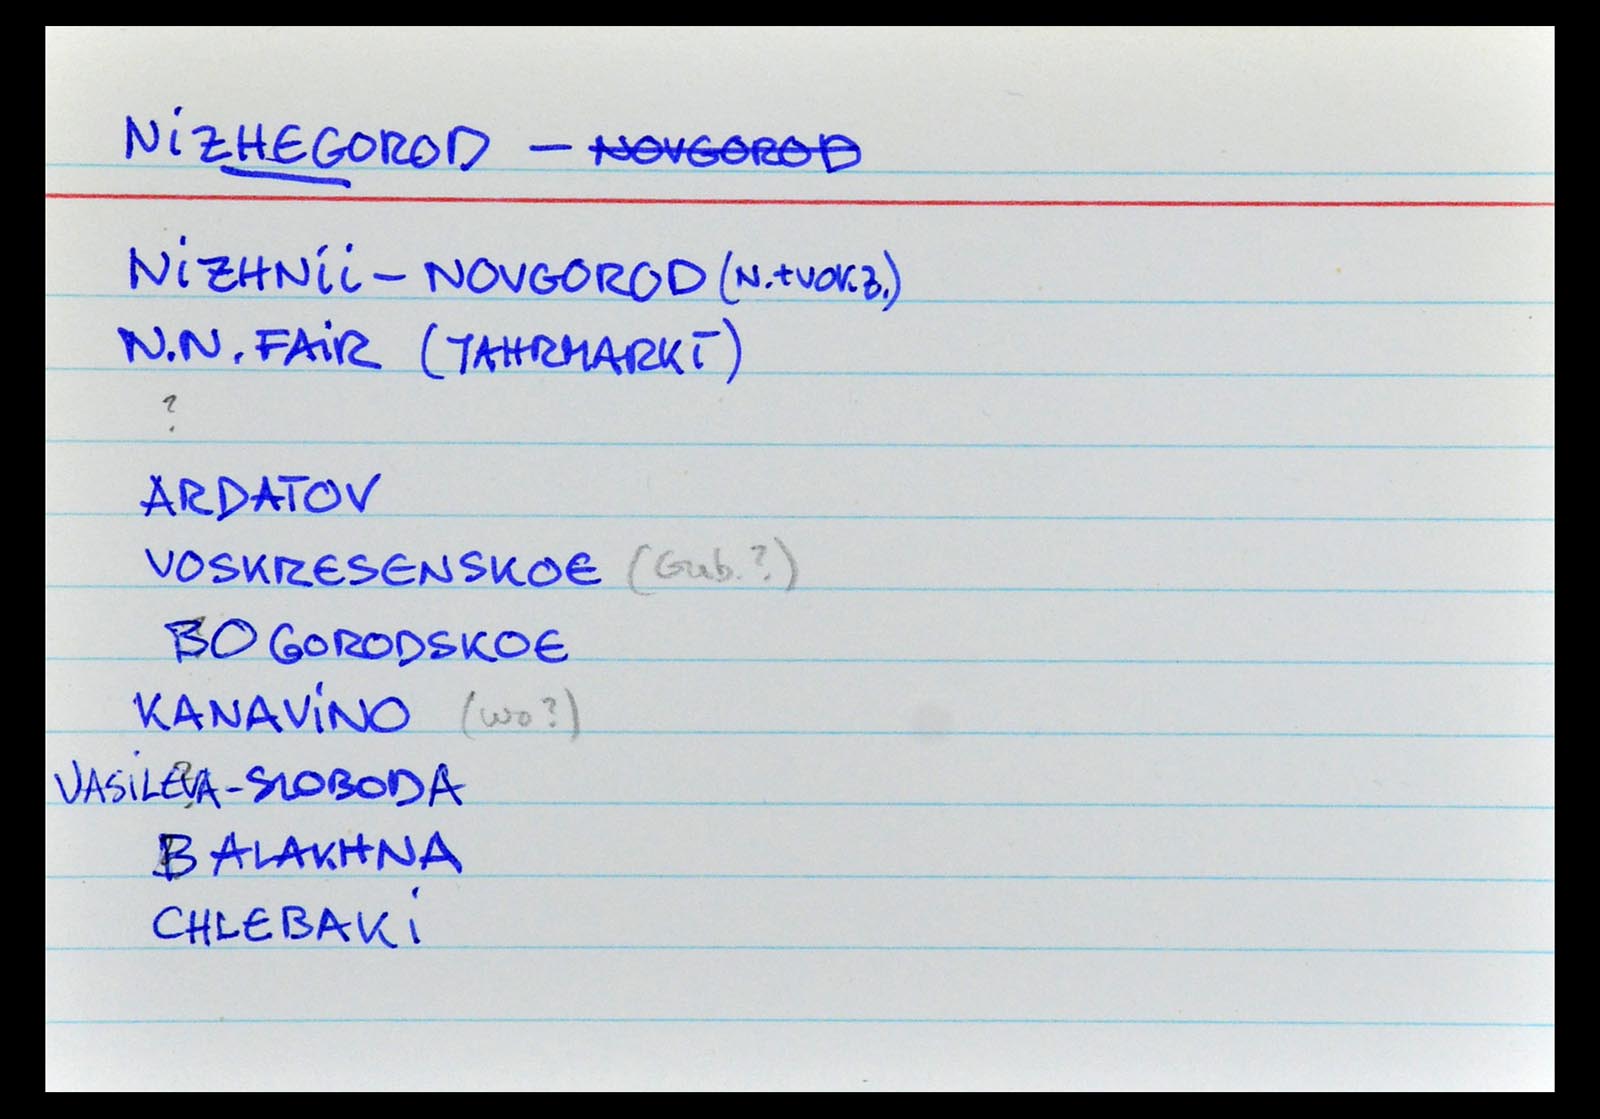 NiZHEGOROD - NOVGOROD
NiZHNii - NOVGOROD (N.+VOKZ.)
N.N. FAiR (JAHRMARKT)
?
ARDATOV
VOSKRESENSKOE (Gub.?)
BOGORODSKOE
KANAViNO (wo?)
VASiLEVA-SLOBODA
?
BALAKHNA
CHLEBAKi